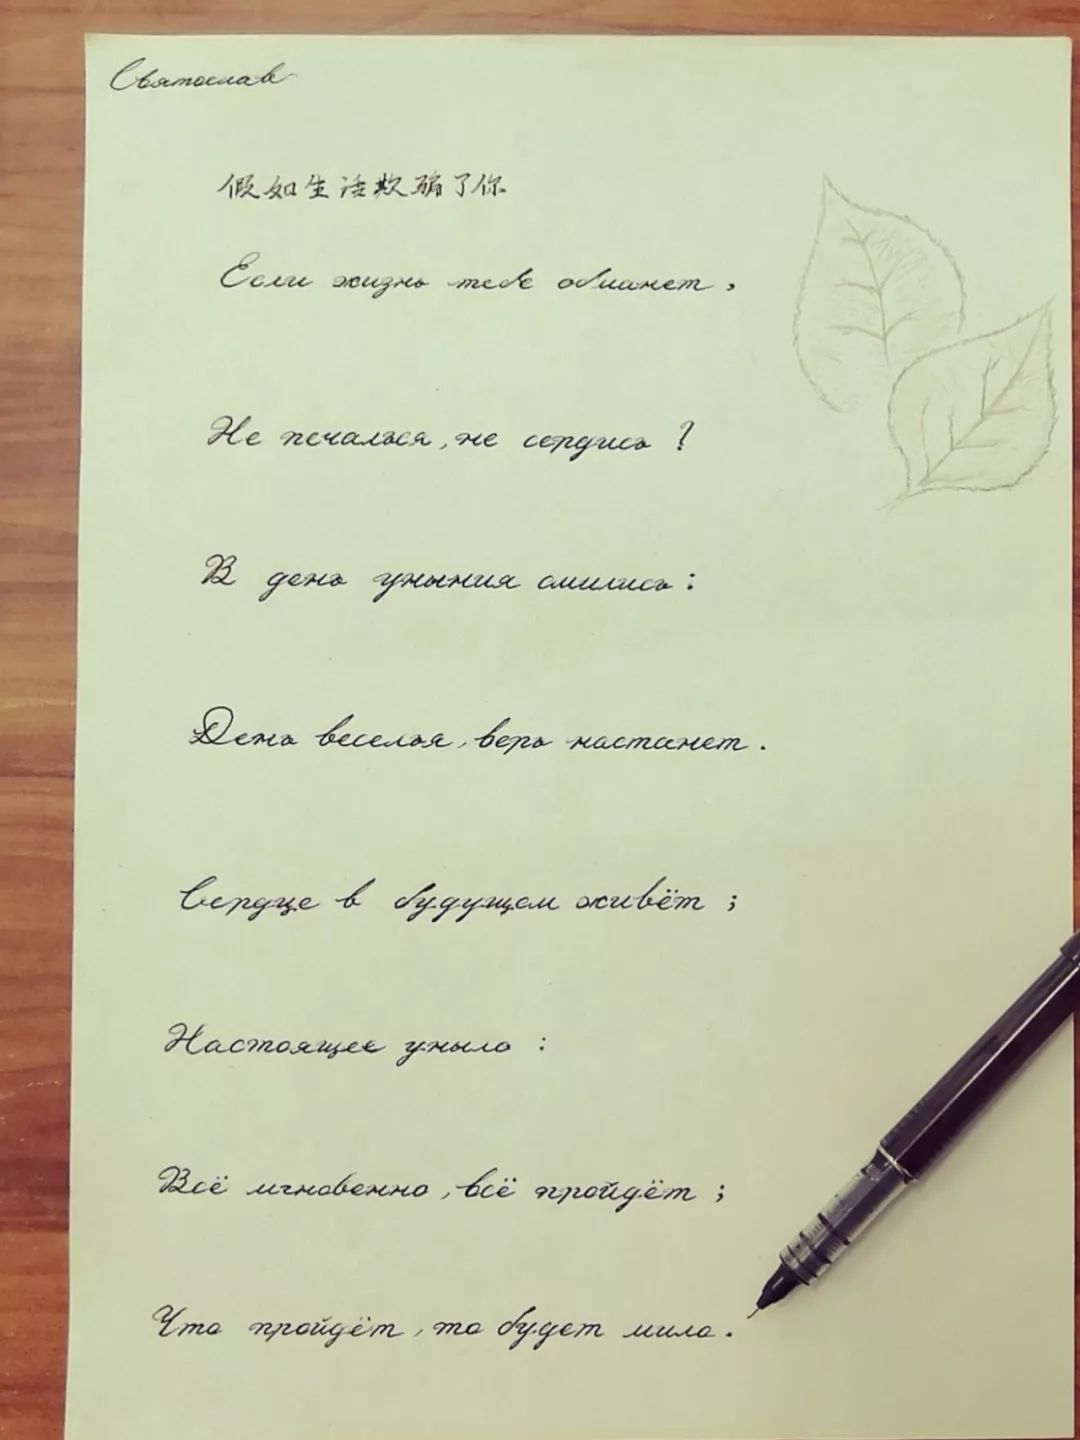 Святослав
假如生活欺骗了你
Если жизнь тебе обманет,
Не печалься, не сердись?
В день уныния смились:
День веселья, верь настанет.
Сердце в будущем живёт;
Настоящее уныло:
Всё мгновенно, всё пройдёт;
Что пройдёт, то будет мило.